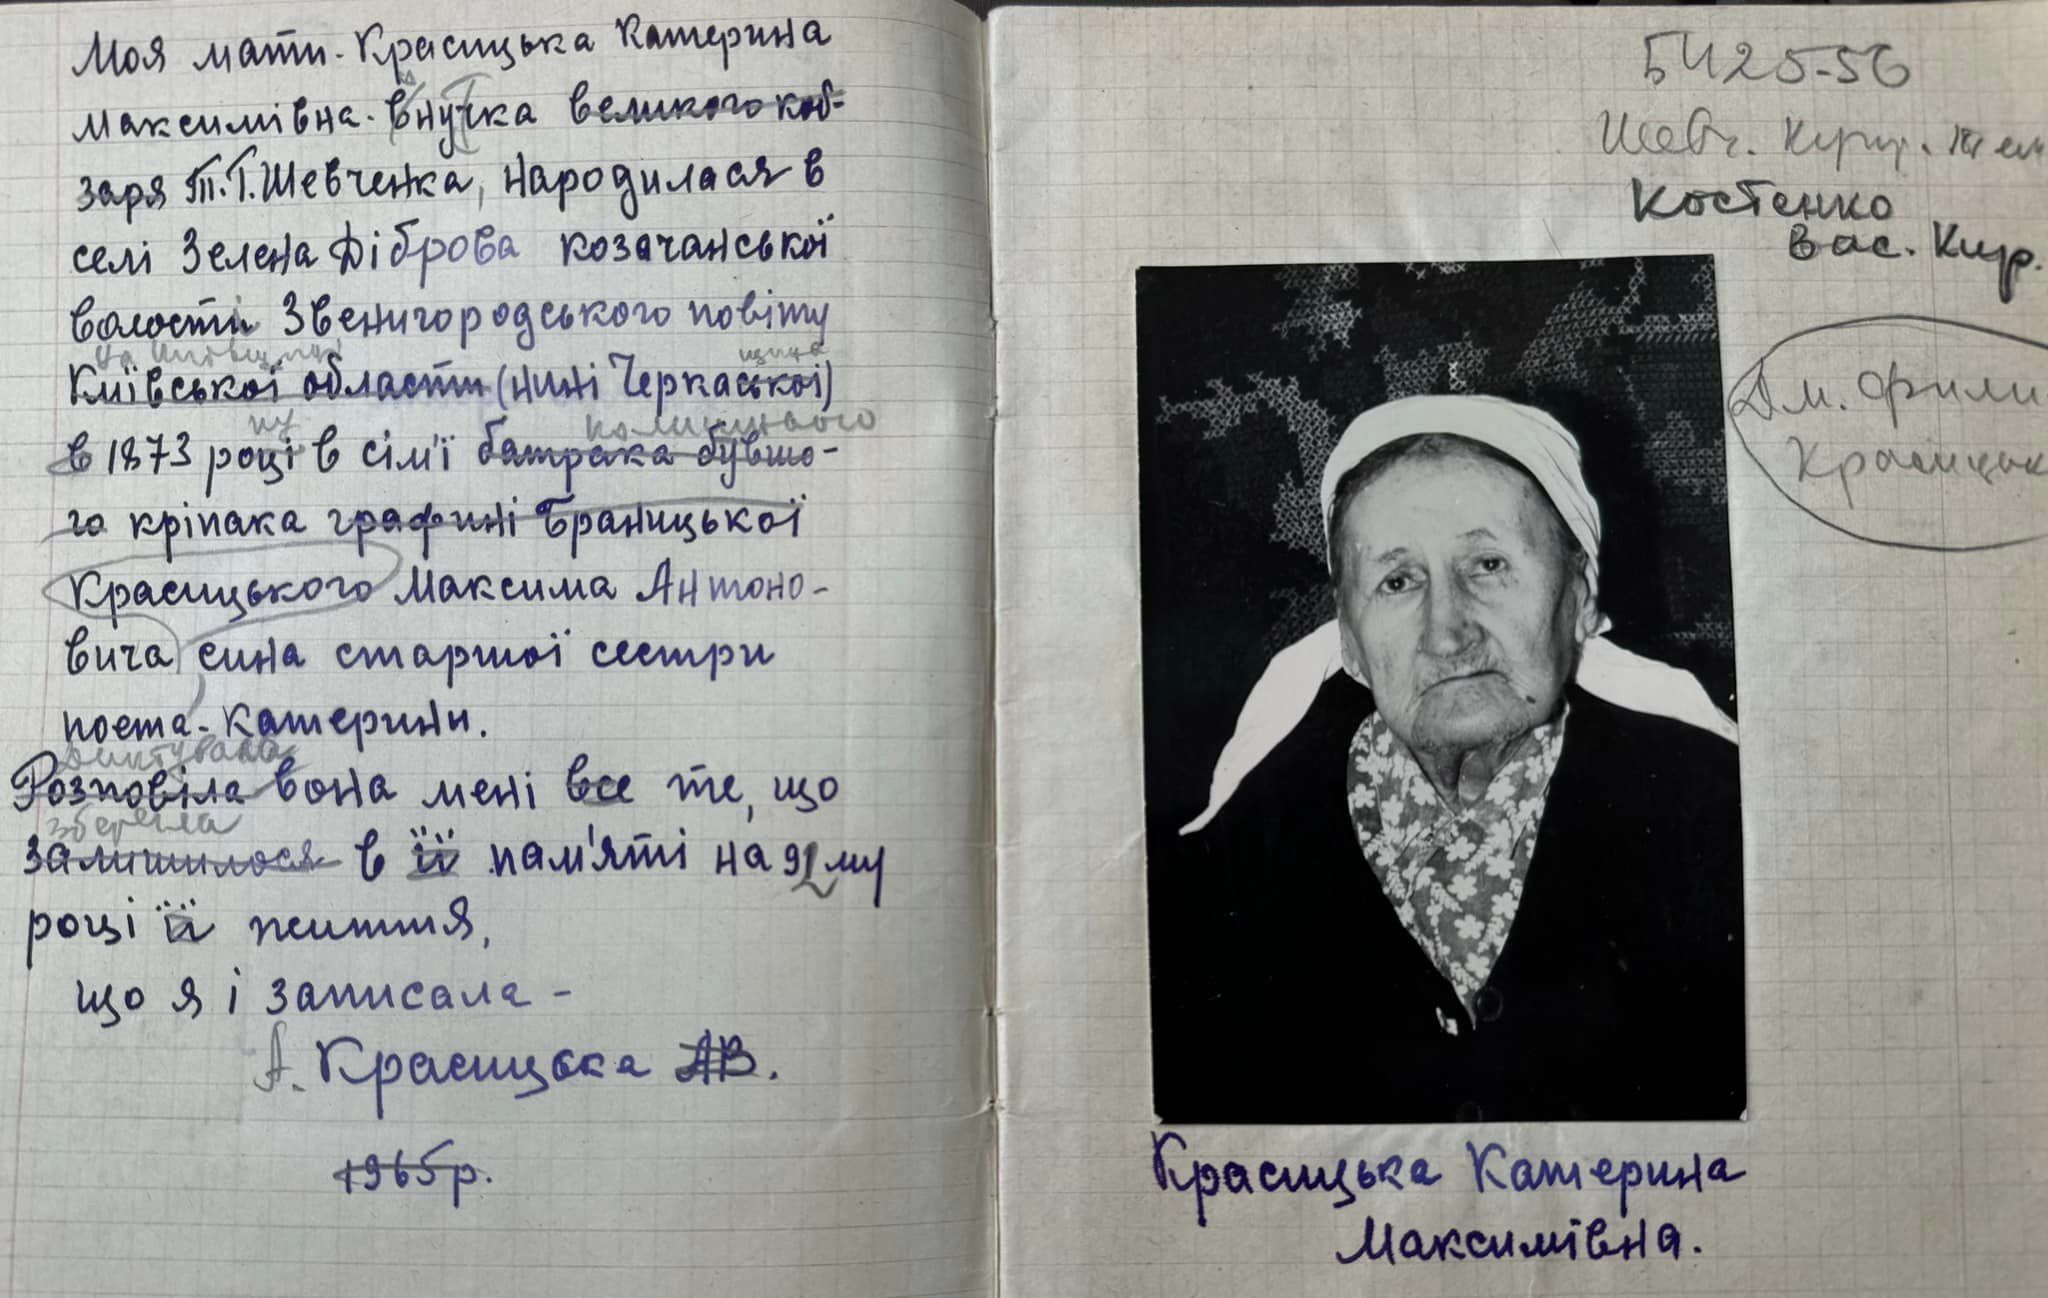 Моя мати - Красицька Катерина
Максимівна - внучка великого коб-
заря Т.Г. Шевченка, народилася в
селі Зелена Діброва козачанської
волости Звенигородського повіту
Київської области (нині Черкаської)
в 1873 році в сім'ї батрака бувшо-
коли
го кріпака графині Браницької
Красицького Максима Антоно-
вича сина старшої сестри
поета - Катерини.
Диктувала
Розповіла вона мені все те, що
зберегла
залишилося в її пам'яті на 92му
році її життя,
що я і записала -
А. Красицька АВ.
1965р.
Шевч.
Костенко
Вас. Кир.
Дм. Фили
Красицьк
Красицька Катерина
Максимівна.